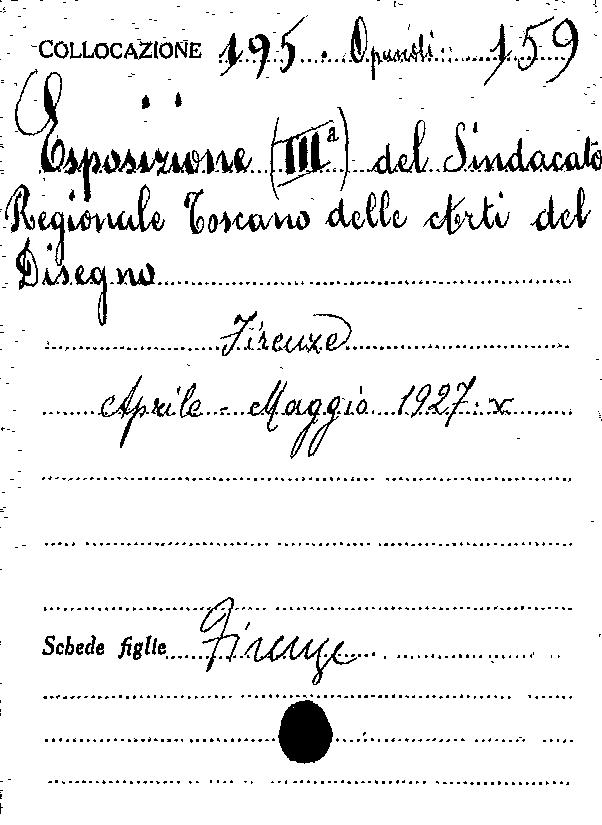 COLLOCAZIONE 195. Opuscoli 159
Esposizione (IIIª) del Sindacato
Regionale Toscano delle Arti del
Disegno
Firenze
Aprile - Maggio 1927. V
Schede figlie Firenze